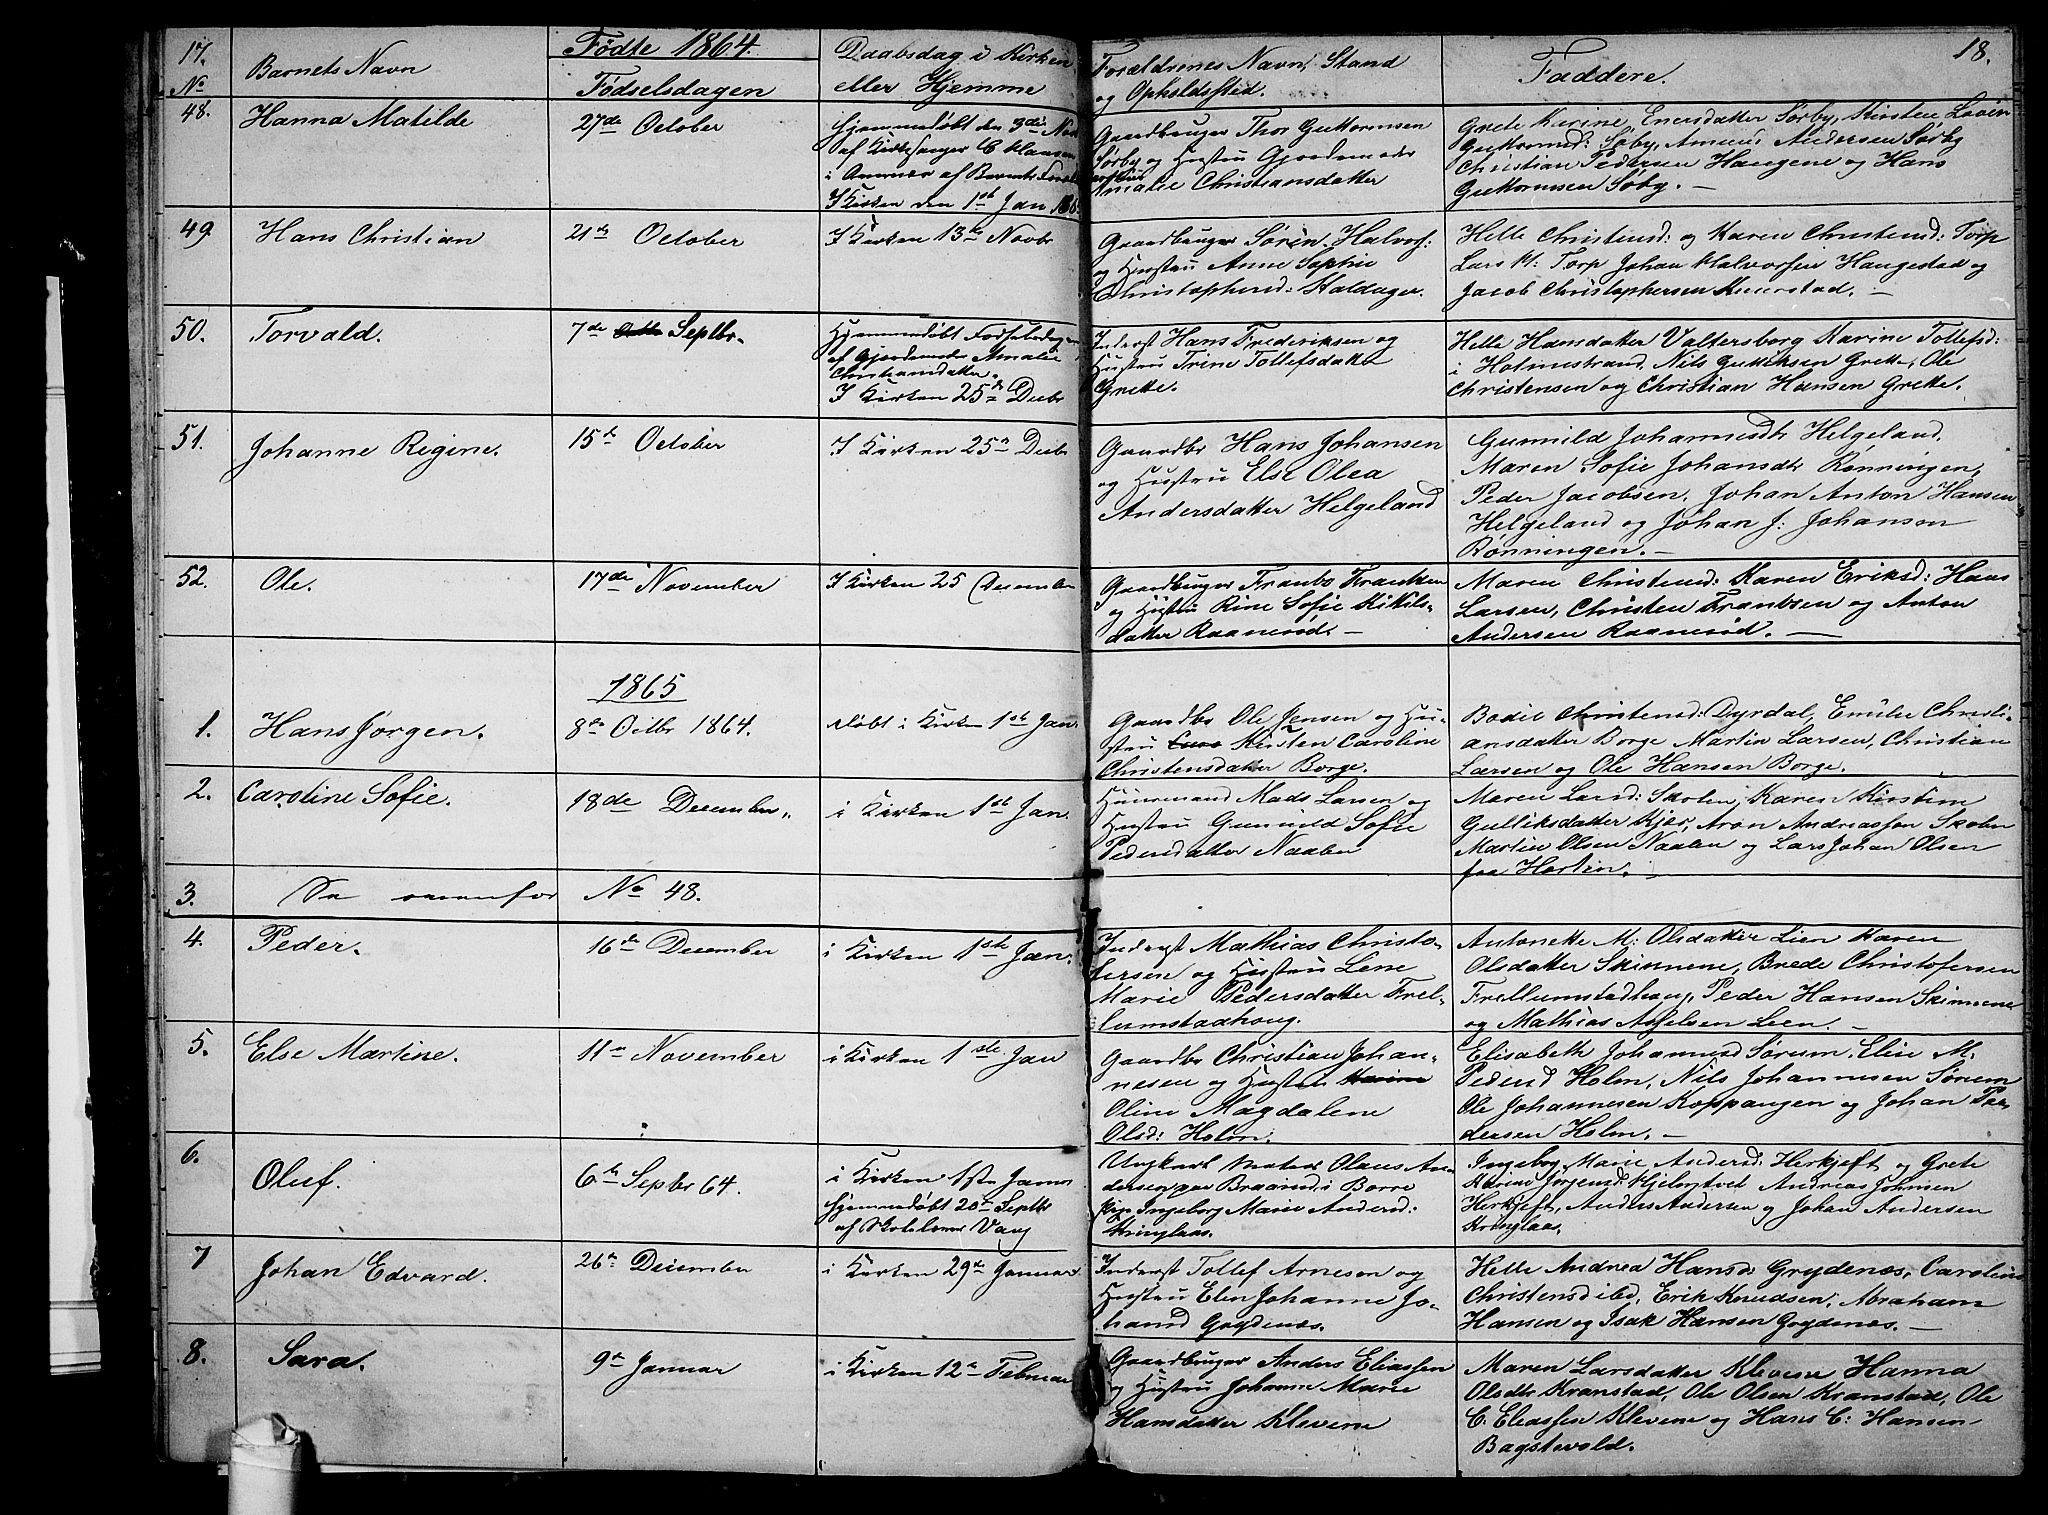 17.
Nº
Barnets Navn
Födte 1864.
Fødselsdagen
Daabsdag i Kirken
eller Hjemme
Forældrenes Navn, Stand
og Opholdssted.
Faddere.
18.
48.
Hanna Matilde
27de October
Hjemmedøbt den 9de Nov
af Kirkesanger C Hansen
i Nærvær af Barnets
I Kirken den 1st Jan
Gaardbruger Thor Guttormsen
Sørby og Hustru Gjordemoder
Amalie Christiansdatter
Grete Karine Enersdatter Sørby, Kirsten
Guttormsd: Søby, Andersen Sørby
Christian Pedersen Haugene og Hans
Guttormsen Søby. —
49.
Hans Christian
21de October
I Kirken 13de Novbr
Gaardbruger Sören Halvors:
og Hustru Anne Sophie
Christophersd: Haldager.
Helle Christensd: og Karen Christensd: Torp
Lars H: Torp Johan Halvorsen Haugestad og
Jacob Christophersen —
50.
Torvald.
7de Septbr.
Hjemmedøbt Fødselsdagen
af Gjordemoder Amalie
Christiansdatter.
I Kirken 25de Decbr
Inderst Hans Frederiksen og
Hustru Trine Tollefsdatter
Grette.
Helle Hansdatter Valtersborg Karine Tollefsd:
i Holmestrand, Nils Gulliksen Grette, Ole
Christensen og Christian Hansen Grette.
51.
Johanne Regine.
15de October
I Kirken 25de Decbr
Gaardbr Hans Johansen
og Hustru Else Olea
Andersdatter Helgeland
Gunnild Johannesdtr Helgeland.
Maren Sofie Johansdtr Rønningen,
Peder Jacobsen, Johan Anton Hansen
Helgeland og Johan J: Johansen
Rønningen. —
52.
Ole.
17de November
I Kirken 25 December
Gaardbruger Frants Frantsen
og Hustru Rine Sofie
datter Raanerød. —
Maren Christensd: Karen Eriksd: Hans
Larsen, Christen Frantsen og Anton
Andersen Raanerød. —
1865
1.
Hans Jørgen.
8de Octbr 1864.
døbt i Kirken 1st Jan
Gaardbr Ole Jensen og Hu-
stru Kirsten Caroline
Christensdatter Borge.
Bodil Christensd: Dyrdal, Emilie Christi-
ansdatter Borge Martin Larsen, Christian
Larsen og Ole Hansen Borge.
2.
Caroline Sofie.
18de December.
i Kirken 1st Jan.
Huusmand Mads Larsen og
Hustru Gunnild Sofie
Pedersdatter Naalen
Maren Larsd: Karen Kirstine
Gulliksdatter Kjær, Aron Andreassen
Martin Olsen Naalen og Lars Johan Olsen
fra Horten.
3.
Se ovenfor
Nº 48.
4.
Peder.
16de December
i Kirken 1ste Jan.
Inderst Mathias Christo-
fersen og Hustru Lene
Marie Pedersdatter Frel-
lumstadhoug.
Antonette M: Olsdatter Lien Karen
Olsdatter Skinnene, Brede Christofersen
Frellumstadhaug, Peder Hansen Skinnene
og Mathias Axselsen Lien. —
5.
Else Martine.
11te November
i Kirken 1ste Jan
Gaardbr Christian Johan-
nesen og Hustru
Oline Magdalene
Olsd: Holm.
Elisabeth Johannesd Sørum. Elin M.
Pedersd Holm, Nils Johannesen Sørum
Ole Johannesen Koppangen og Johan Pe-
dersen Holm. —
6.
Oluf.
6te Septbr 64.
i Kirken 1ste Januar
Hjemmedøbt 20de Septbr
af Skolelærer Vaag
Ungkarl Olaus An-
dersen paa i Borre
Pige Ingeborg Marie Andersd:
Kringlaas.
Ingeborg Marie Andersd: Herkjeft og Grete
Karine Jørgensd Andreas Johnsen
Herkjeft, Anders Andersen og Johan Andersen
Kringlaas.
7
Johan Edvard.
26de December
i Kirken 29de Januar
Inderst Tollef Arnesen og
Hustru Elen Johanne Jo-
hansd Grydenæs.
Helle Andrea Hansd Grydenæs, Caroline
Christensd ibd, Erik Knudsen, Abraham
Hansen og Isak Hansen Grydenæs. —
8.
Sara.
9de Januar
i Kirken 12te Februar
Gaardbruger Anders Eliassen
og Hustru Johanne Marie
Hansdatter Klevene
Maren Larsdatter Klevene Hanna
Olsdtr Kranstad, Ole Olsen Kranstad, Ole
C. Eliassen Klevene og Hans C: Hansen
Bagstevold.